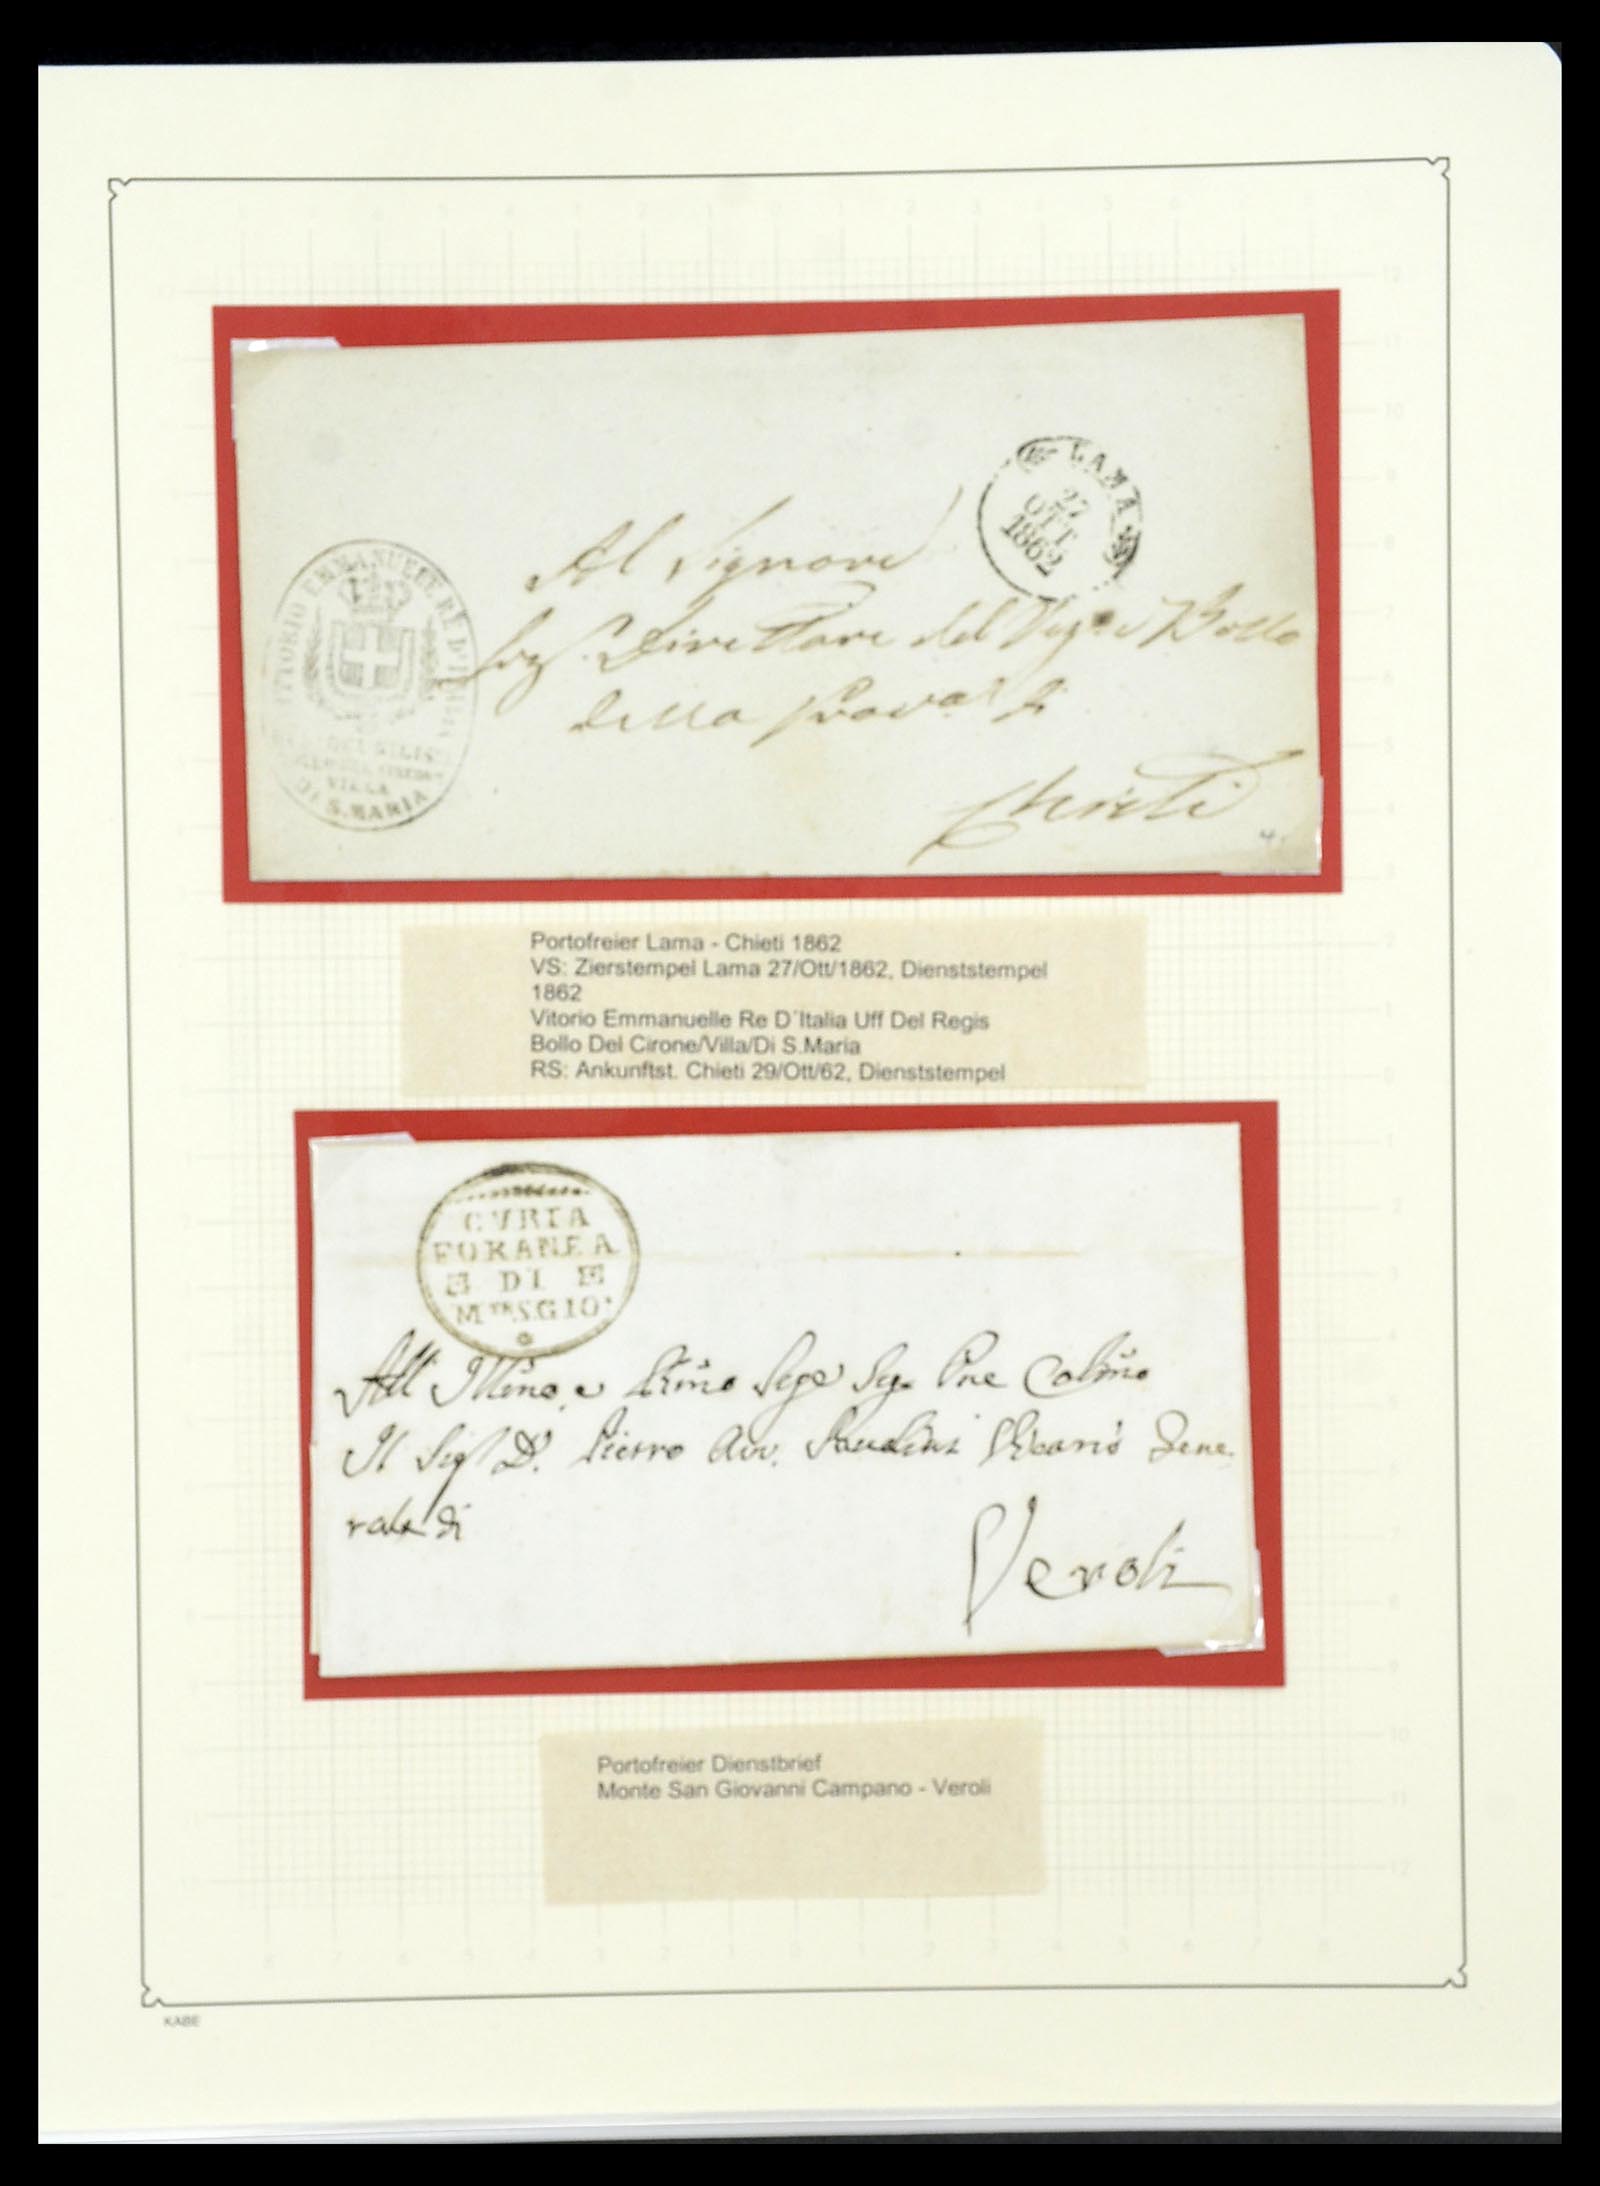 LAMA
27
OTT
1862
Al Signore
Sig. Direttore del Reg.o e Bollo
della Prov.a di
Chieti
4.
VITTORIO EMMANUELE RE D'ITALIA
VILLA
DI S. MARIA
Portofreier Lama - Chieti 1862
VS: Zierstempel Lama 27/Ott/1862, Dienststempel
1862
Vitorio Emmanuelle Re D´Italia Uff Del Regis
Bollo Del Cirone/Villa/Di S.Maria
RS: Ankunftst. Chieti 29/Ott/62, Dienststempel
CVRIA
FORANEA
DI
M.TE S.GIO.
All Illmo e Sige Sig. Pne Colmo
Il Sig. D. Pietro Avv. Vicario Gene
rale di
Veroli
Portofreier Dienstbrief
Monte San Giovanni Campano - Veroli
KABE